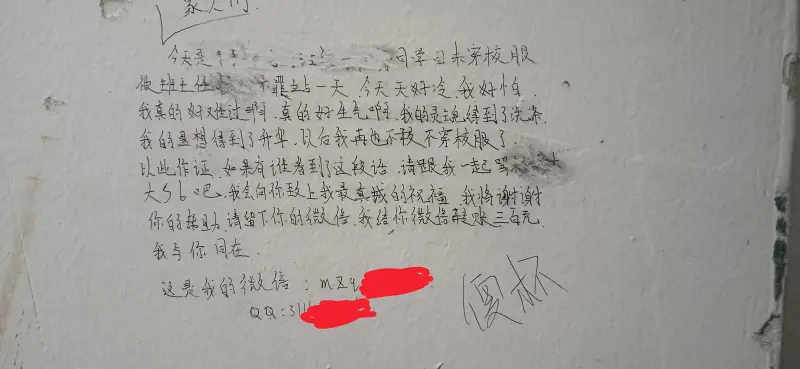 家人们
今天是 同学因未穿校服
被班主任 罪站一天 今天天好冷,我好怕
我真的好难过啊,真的好生气啊,我的灵魂得到了洗涤
我的思想得到了升华,以后我再也不敢不穿校服了
以此作证,如果有谁看到了这段话,请跟我一起骂
大S b 吧,我会向你致上我最真诚的祝福,我将谢谢
你的帮助,请留下你的微信,我给你微信转账三百元
我与你同在
这是我的微信:mzq
QQ:311
傻杯